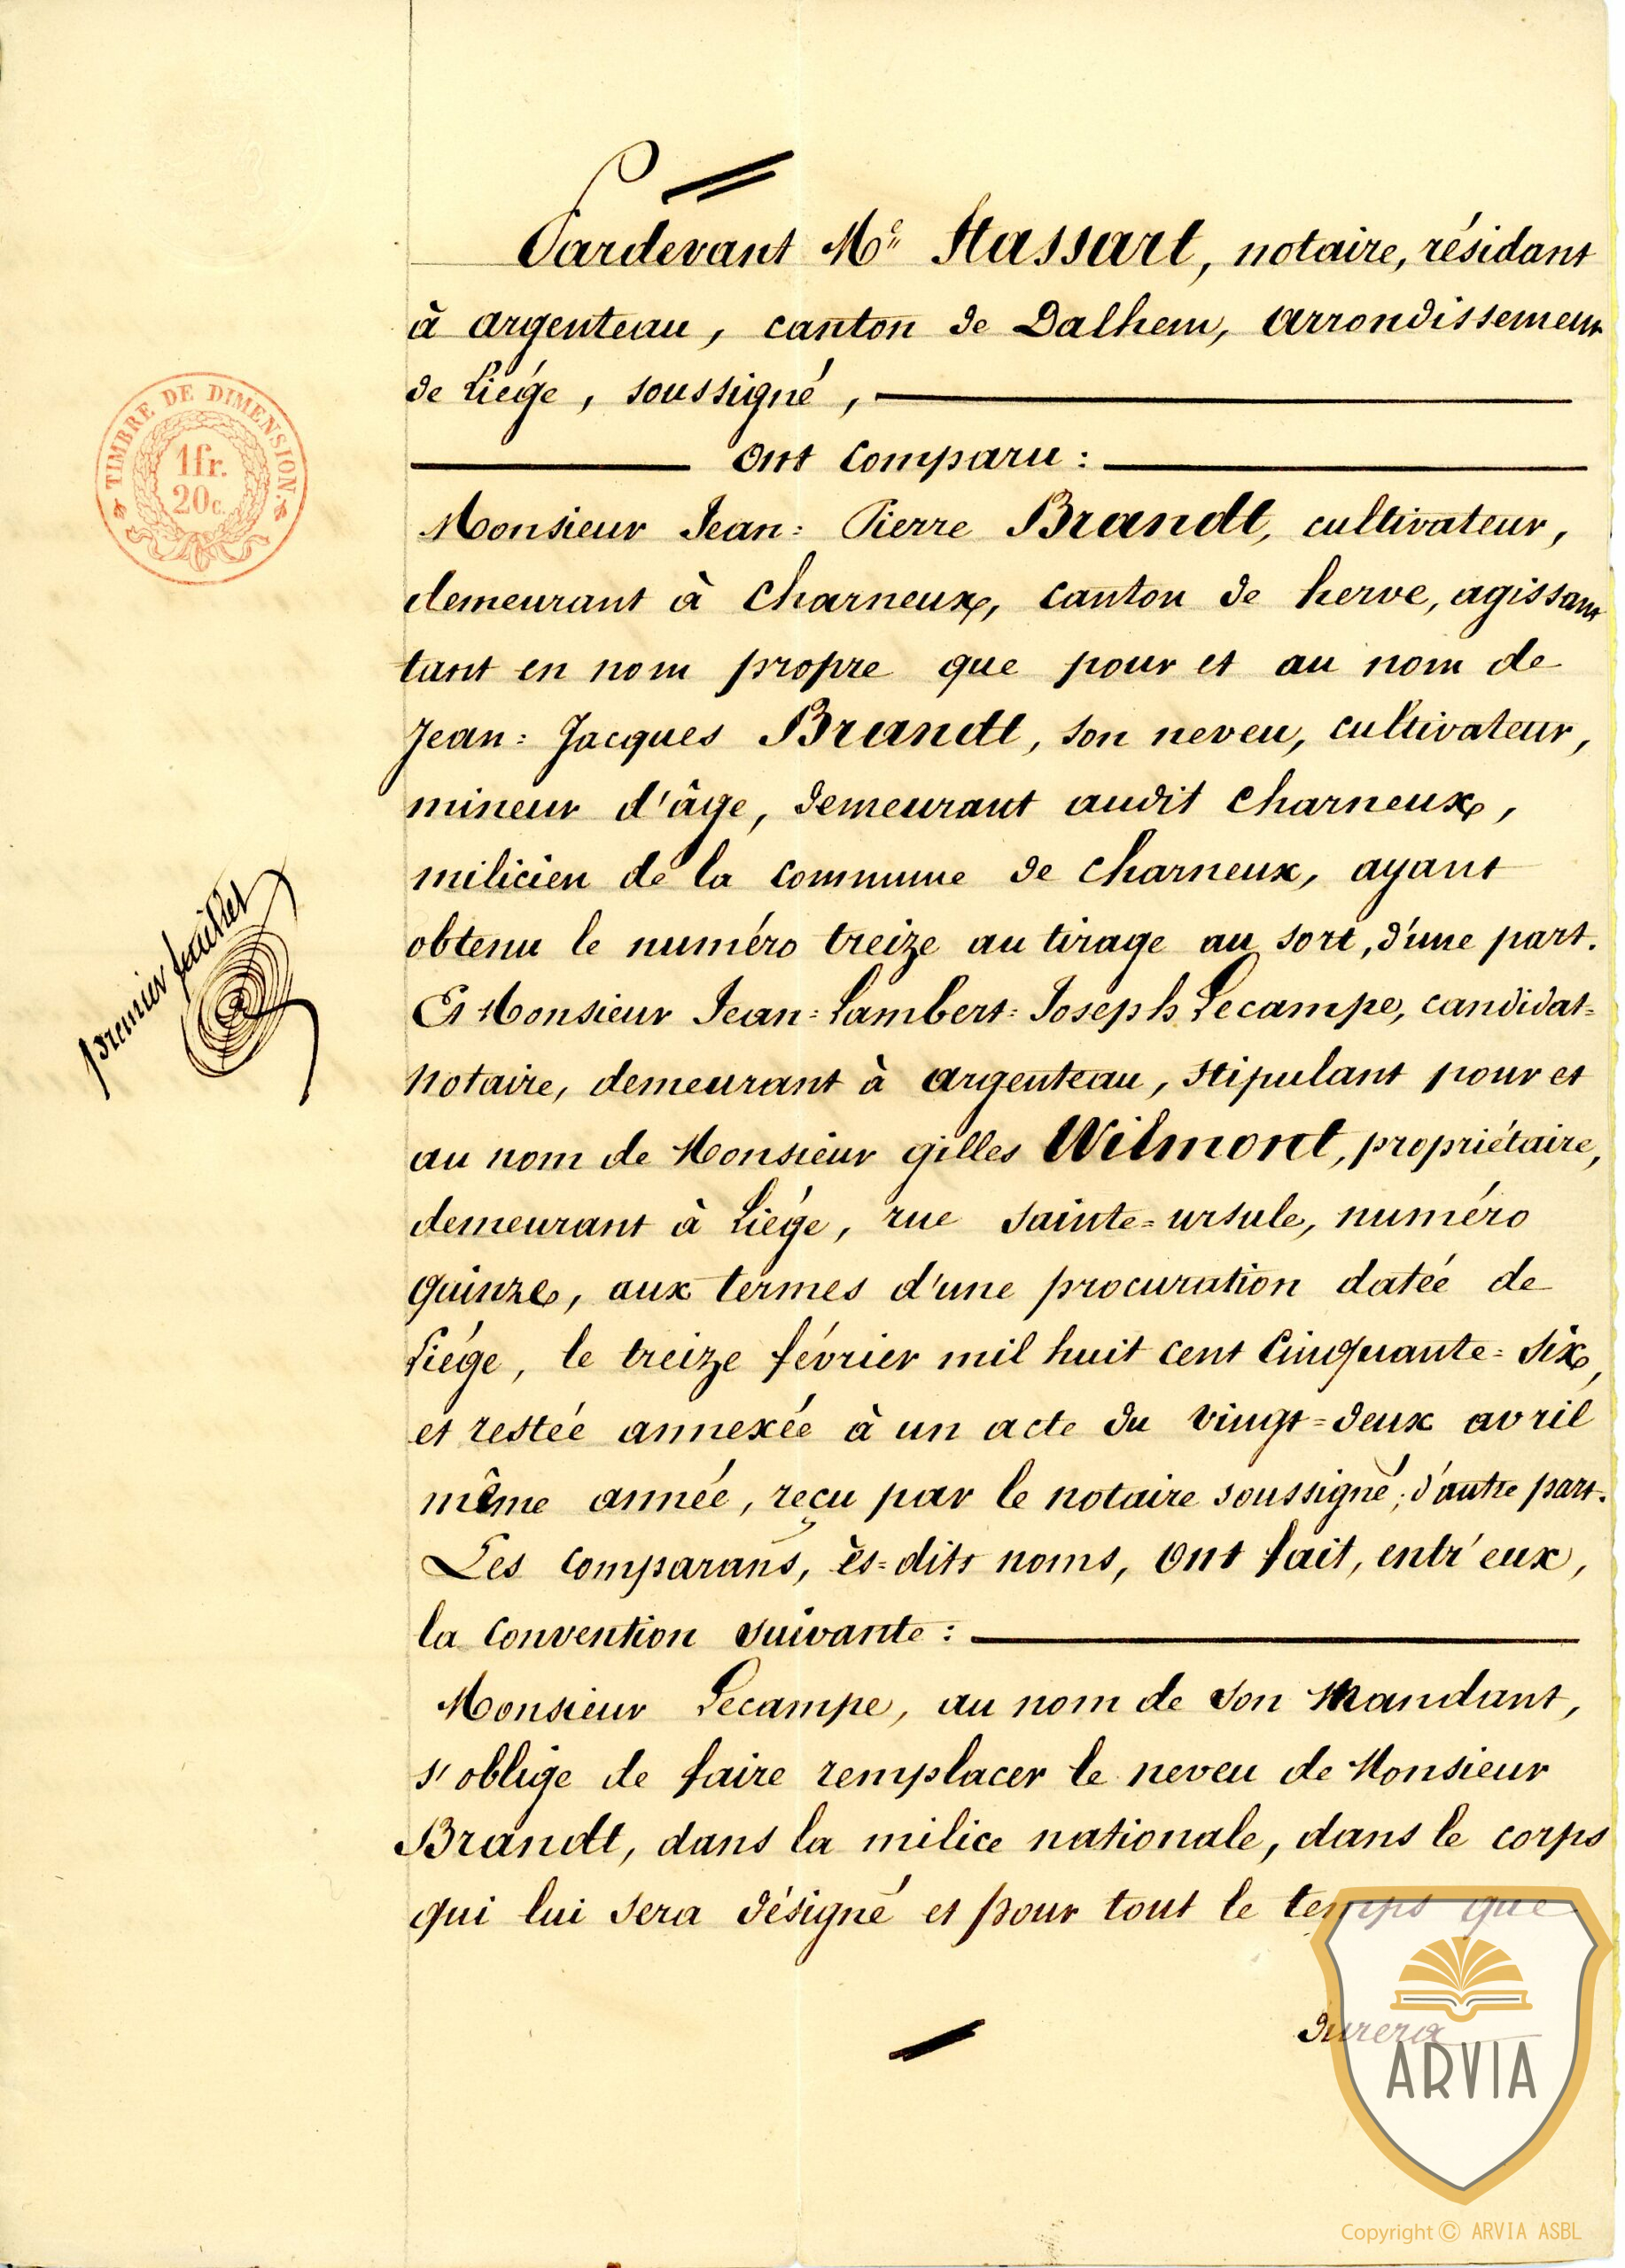 Pardevant Me Stassart, notaire, résidant
à argenteau, canton de Dalhem, arrondissement
de Liége, soussigné,
Ont Comparu :
Monsieur Jean = Pierre Brandt, cultivateur,
demeurant à Charneux, canton de herve, agissant
tant en nom propre que pour et au nom de
Jean = Jacques Brandt, son neveu, cultivateur,
mineur d'âge, demeurant audit Charneux,
milicien de la commune de Charneux, ayant
obtenu le numéro treize au tirage au sort, d'une part.
Et Monsieur Jean = Lambert = Joseph Lecampe, candidat =
notaire, demeurant à argenteau, stipulant pour et
au nom de Monsieur gilles Wilmont, propriétaire,
demeurant à Liége, rue Sainte = ursule, numéro
quinze, aux termes d'une procuration datée de
Liége, le treize février mil huit cent Cinquante = six,
et restée annexée à un acte du vingt = deux avril
même année, reçu par le notaire soussigné; d'autre part.
Les Comparans, ès = dits noms, Ont fait, entr'eux,
la Convention suivante :
Monsieur Lecampe, au nom de son Mandant,
s'oblige de faire remplacer le neveu de Monsieur
Brandt, dans la milice nationale, dans le corps
qui lui sera désigné et pour tout le temps que
durera
TIMBRE DE DIMENSION.
1fr.
20c.
premier feuillet
ARVIA
Copyright © ARVIA ASBL